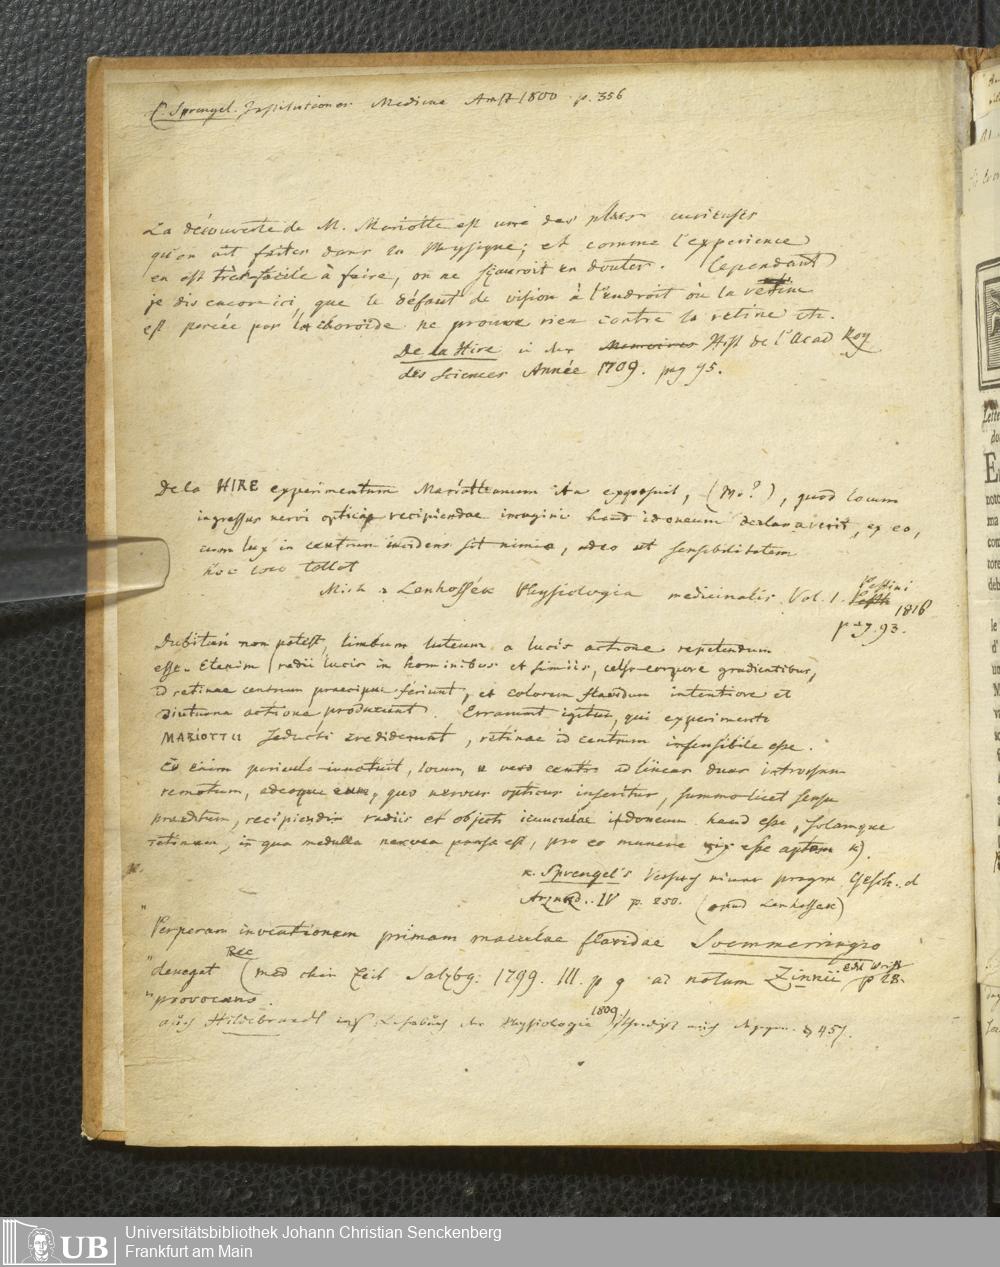 C. Sprengel. Institutiones Medicae Amst 1800 p. 356
La découverte de M. Mariotte est une des plus curieuses
qu'on ait faites dans la Physique; et comme l'experience
en est très facile à faire, on ne sçauroit en douter. Cependant
je dis encore ici, que le défaut de vision à l'endroit où la retine
est percée par la choroïde ne prouve rien contre la retine etc.
De la Hire in der Memoires Hist de l'Acad Roy
des Sciences Année 1709. pag 95.
De la HIRE experimentum Mariotteanum ita exposuit, (Mo?), quod locum
ingressus nervi optici recipiendae imagini haud idoneum declaraverit, ex eo,
cum lux in centrum incidens sit nimia, adeo ut sensibilitatem
hoc loco tollat
Mich a Lenhossék Physiologia medicinalis Vol. 1. Pesth Pestini 1816
pag. 93.
Dubitari non potest, limbum luteum a lucis actione repetendum
esse. Etenim radii lucis in hominibus et simiis, celso corpore gradientibus,
id retinae centrum praecipue feriunt, et colorem flavidum intentiore et
diuturna actione producunt. Errarunt igitur, qui experimento
MARIOTTII seducti crediderunt, retinae id centrum insensibile esse.
Eo enim periculo innotuit, locum, a vero centro ad lineas duas introrsum
remotum, adeoque eum, quo nervus opticus inseritur, summo licet sensu
praeditum, recipiendis radiis et objecti iconculae idoneum haud esse, solamque
retinam, in qua medulla nervea pansa est, pro eo munere esse aptam κ).
κ. Sprengel's Versuch einer pragm. Gesch. d
Arznkd. IV p. 250. (apud Lenhossek)
"Perperam inventionem primam maculae flavidae Soemmeringio
"denegat Rec (med chir Zeit Salzbg. 1799. III. p 9 ad notum Zinnii edit Wrisb p 28.
"provocans.
auch Hildebrandt in s. Lehrbuch der Physiologie 1809 § 457.
Universitätsbibliothek Johann Christian Senckenberg
Frankfurt am Main
UB